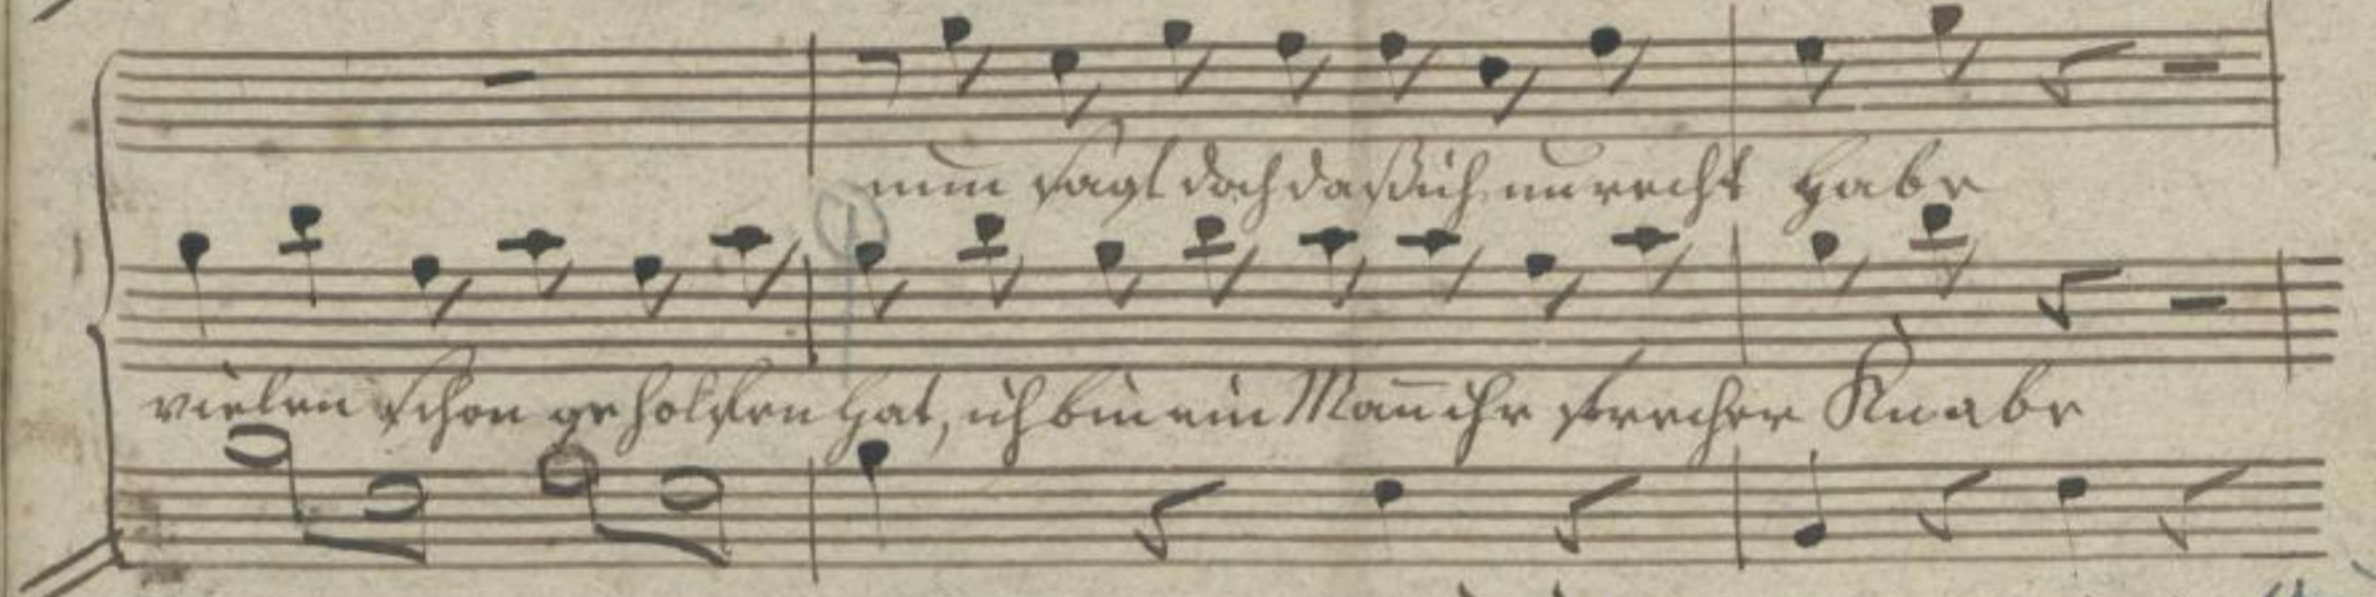 nun sagt doch daß ich unrecht habe
vielen schon geholfen hat, ich bin ein Mañ ihr frecher Knabe